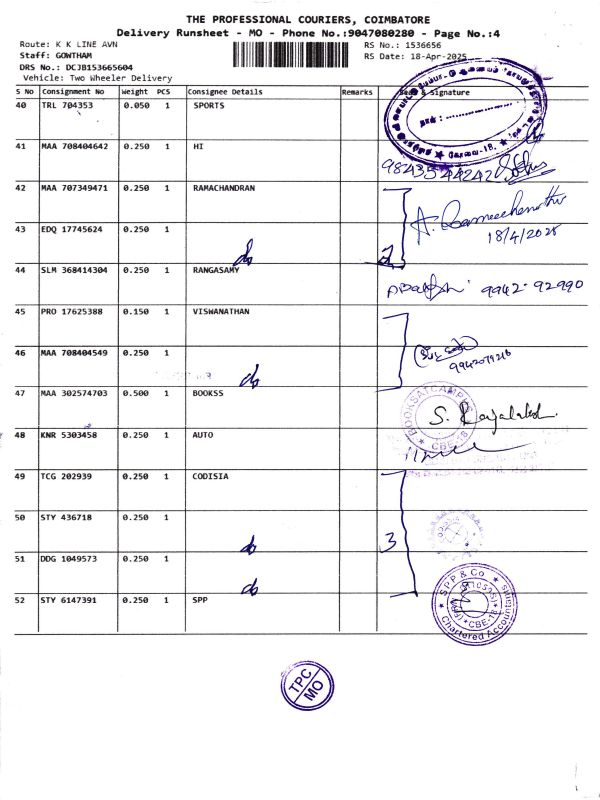 THE PROFESSIONAL COURIERS, COIMBATORE
Delivery Runsheet - MO - Phone No.:9047080280 - Page No.:4
Route: K K LINE AVN
Staff: GOWTHAM
DRS No.: DCJB153665604
Vehicle: Two Wheeler Delivery
RS No.: 1536656
RS Date: 18-Apr-2025
S No Consignment No Weight PCS Consignee Details Remarks & Signature
40 TRL 704353 0.050 1 SPORTS
41 MAA 708404642 0.250 1 HI
42 MAA 707349471 0.250 1 RAMACHANDRAN
18/4/2025
43 EDQ 17745624 0.250 1 do 2
44 SLM 368414304 0.250 1 RANGASAMY 9942-92990
45 PRO 17625388 0.150 1 VISWANATHAN
46 MAA 708404549 0.250 1 do
47 MAA 302574703 0.500 1 BOOKSS
48 KNR 5303458 0.250 1 AUTO
49 TCG 202939 0.250 1 CODISIA
50 STY 436718 0.250 1 do 3
51 DDG 1049573 0.250 1 do
52 STY 6147391 0.250 1 SPP
SPP & Co
Chartered Accountants
CBE-18
TPC
MO